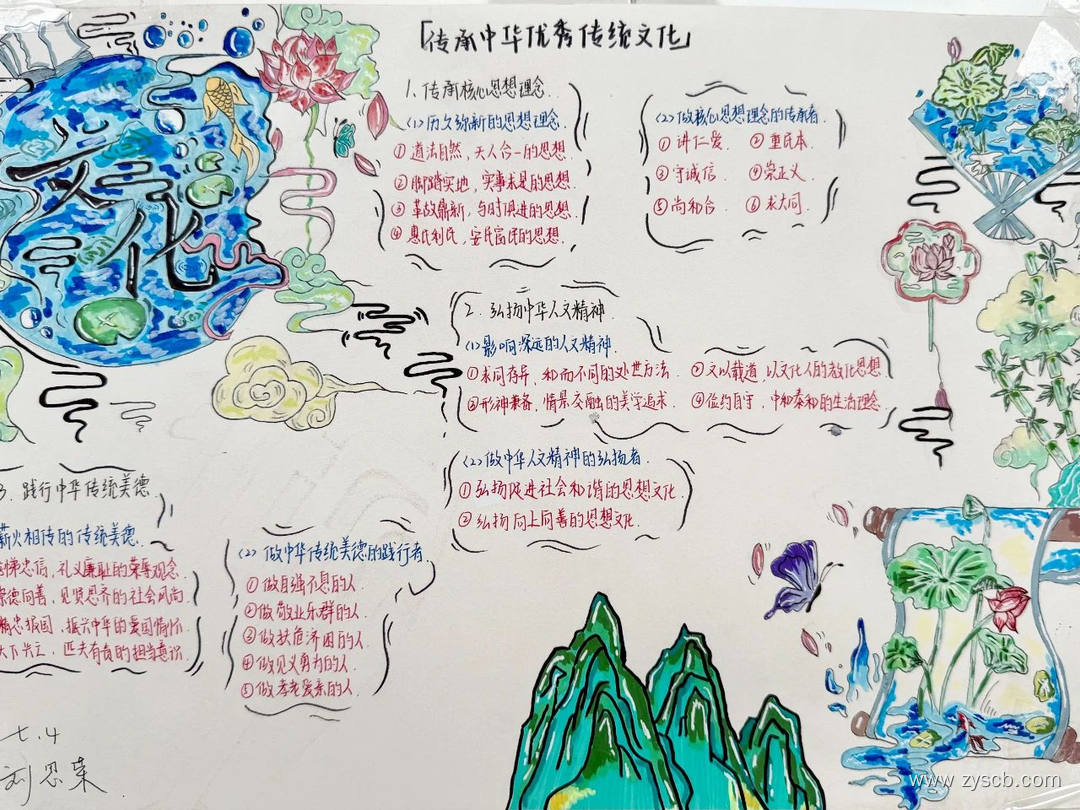 「传承中华优秀传统文化」
文化
1、传承核心思想理念.
(1)历久弥新的思想理念.
①道法自然,天人合一的思想.
②脚踏实地,实事求是的思想.
③革故鼎新,与时俱进的思想.
④惠民利民,安民富民的思想.
(2)做核心思想理念的传承者.
①讲仁爱. ②重民本.
③守诚信. ④崇正义.
⑤尚和合. ⑥求大同.
2.弘扬中华人文精神.
(1)影响深远的人文精神.
①求同存异,和而不同的处世方法. ②文以载道,以文化人的教化思想
③形神兼备,情景交融的美学追求. ④俭约自守,中和泰和的生活理念.
(2)做中华人文精神的弘扬者.
①弘扬促进社会和谐的思想文化.
②弘扬向上向善的思想文化.
3.践行中华传统美德.
薪火相传的传统美德.
悌忠信,礼义廉耻的荣辱观念.
崇德向善,见贤思齐的社会风尚.
精忠报国,振兴中华的爱国情怀.
天下兴亡,匹夫有责的担当意识.
(2)做中华传统美德的践行者.
①做自强不息的人.
②做敬业乐群的人.
③做扶危济困的人.
④做见义勇为的人.
⑤做孝老爱亲的人.
七.4
刘思荣.
www.zyscb.com